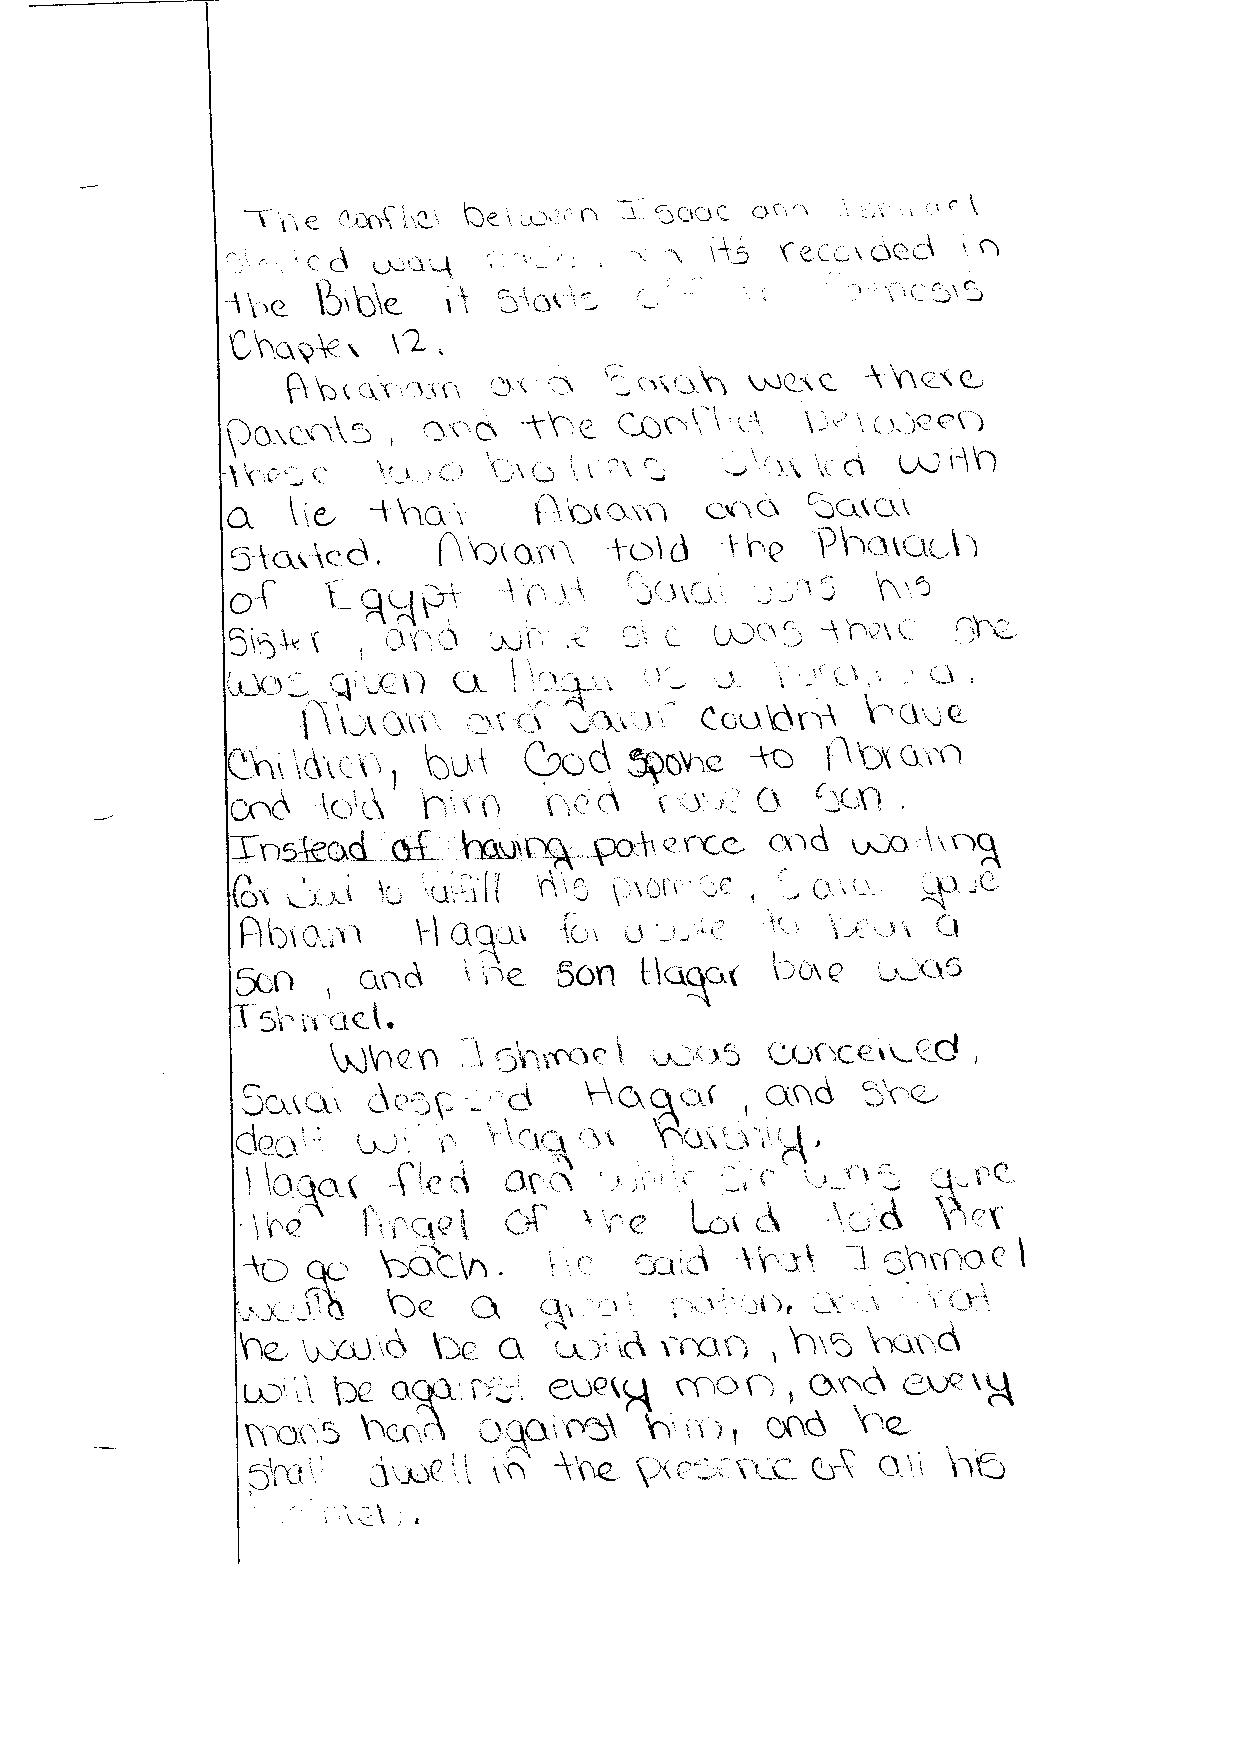 The conflict between Isaac and Ishmael
started way its recorded in
the Bible it starts off in Genesis
Chapter 12.
Abraham and Sarah were there
parents, and the conflict between
these two brothers started with
a lie that Abram and Sarai
started. Abram told the Pharaoh
of Egypt that Sarai was his
sister, and while she was there she
was given a Hagar as a
Abram and Sarai couldn't have
children, but God spoke to Abram
and told him he'd have a son.
Instead of having patience and waiting
for God to fulfill his promise, Sarai gave
Abram Hagar for a wife to bear a
son, and the son Hagar bore was
Ishmael.
When Ishmael was conceived,
Sarai despised Hagar, and she
dealt with Hagar harshly.
Hagar fled and while she was gone
the Angel of the Lord told Her
to go back. He said that Ishmael
would be a great nation, and that
he would be a wild man, his hand
will be against every man, and every
mans hand against him, and he
shall dwell in the presence of all his